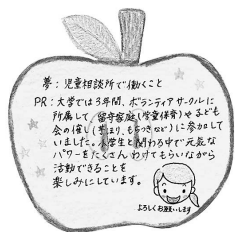 夢：児童相談所で働くこと
PR：大学では3年間、ボランティアサークルに
所属して留守家庭（学童保育）や子ども
会の催し（夏まつり、もちつきなど）に参加して
いました。小学生と関わる中で元気な
パワーをたくさんわけてもらいながら
活動できることを
楽しみにしています。
よろしくお願いします